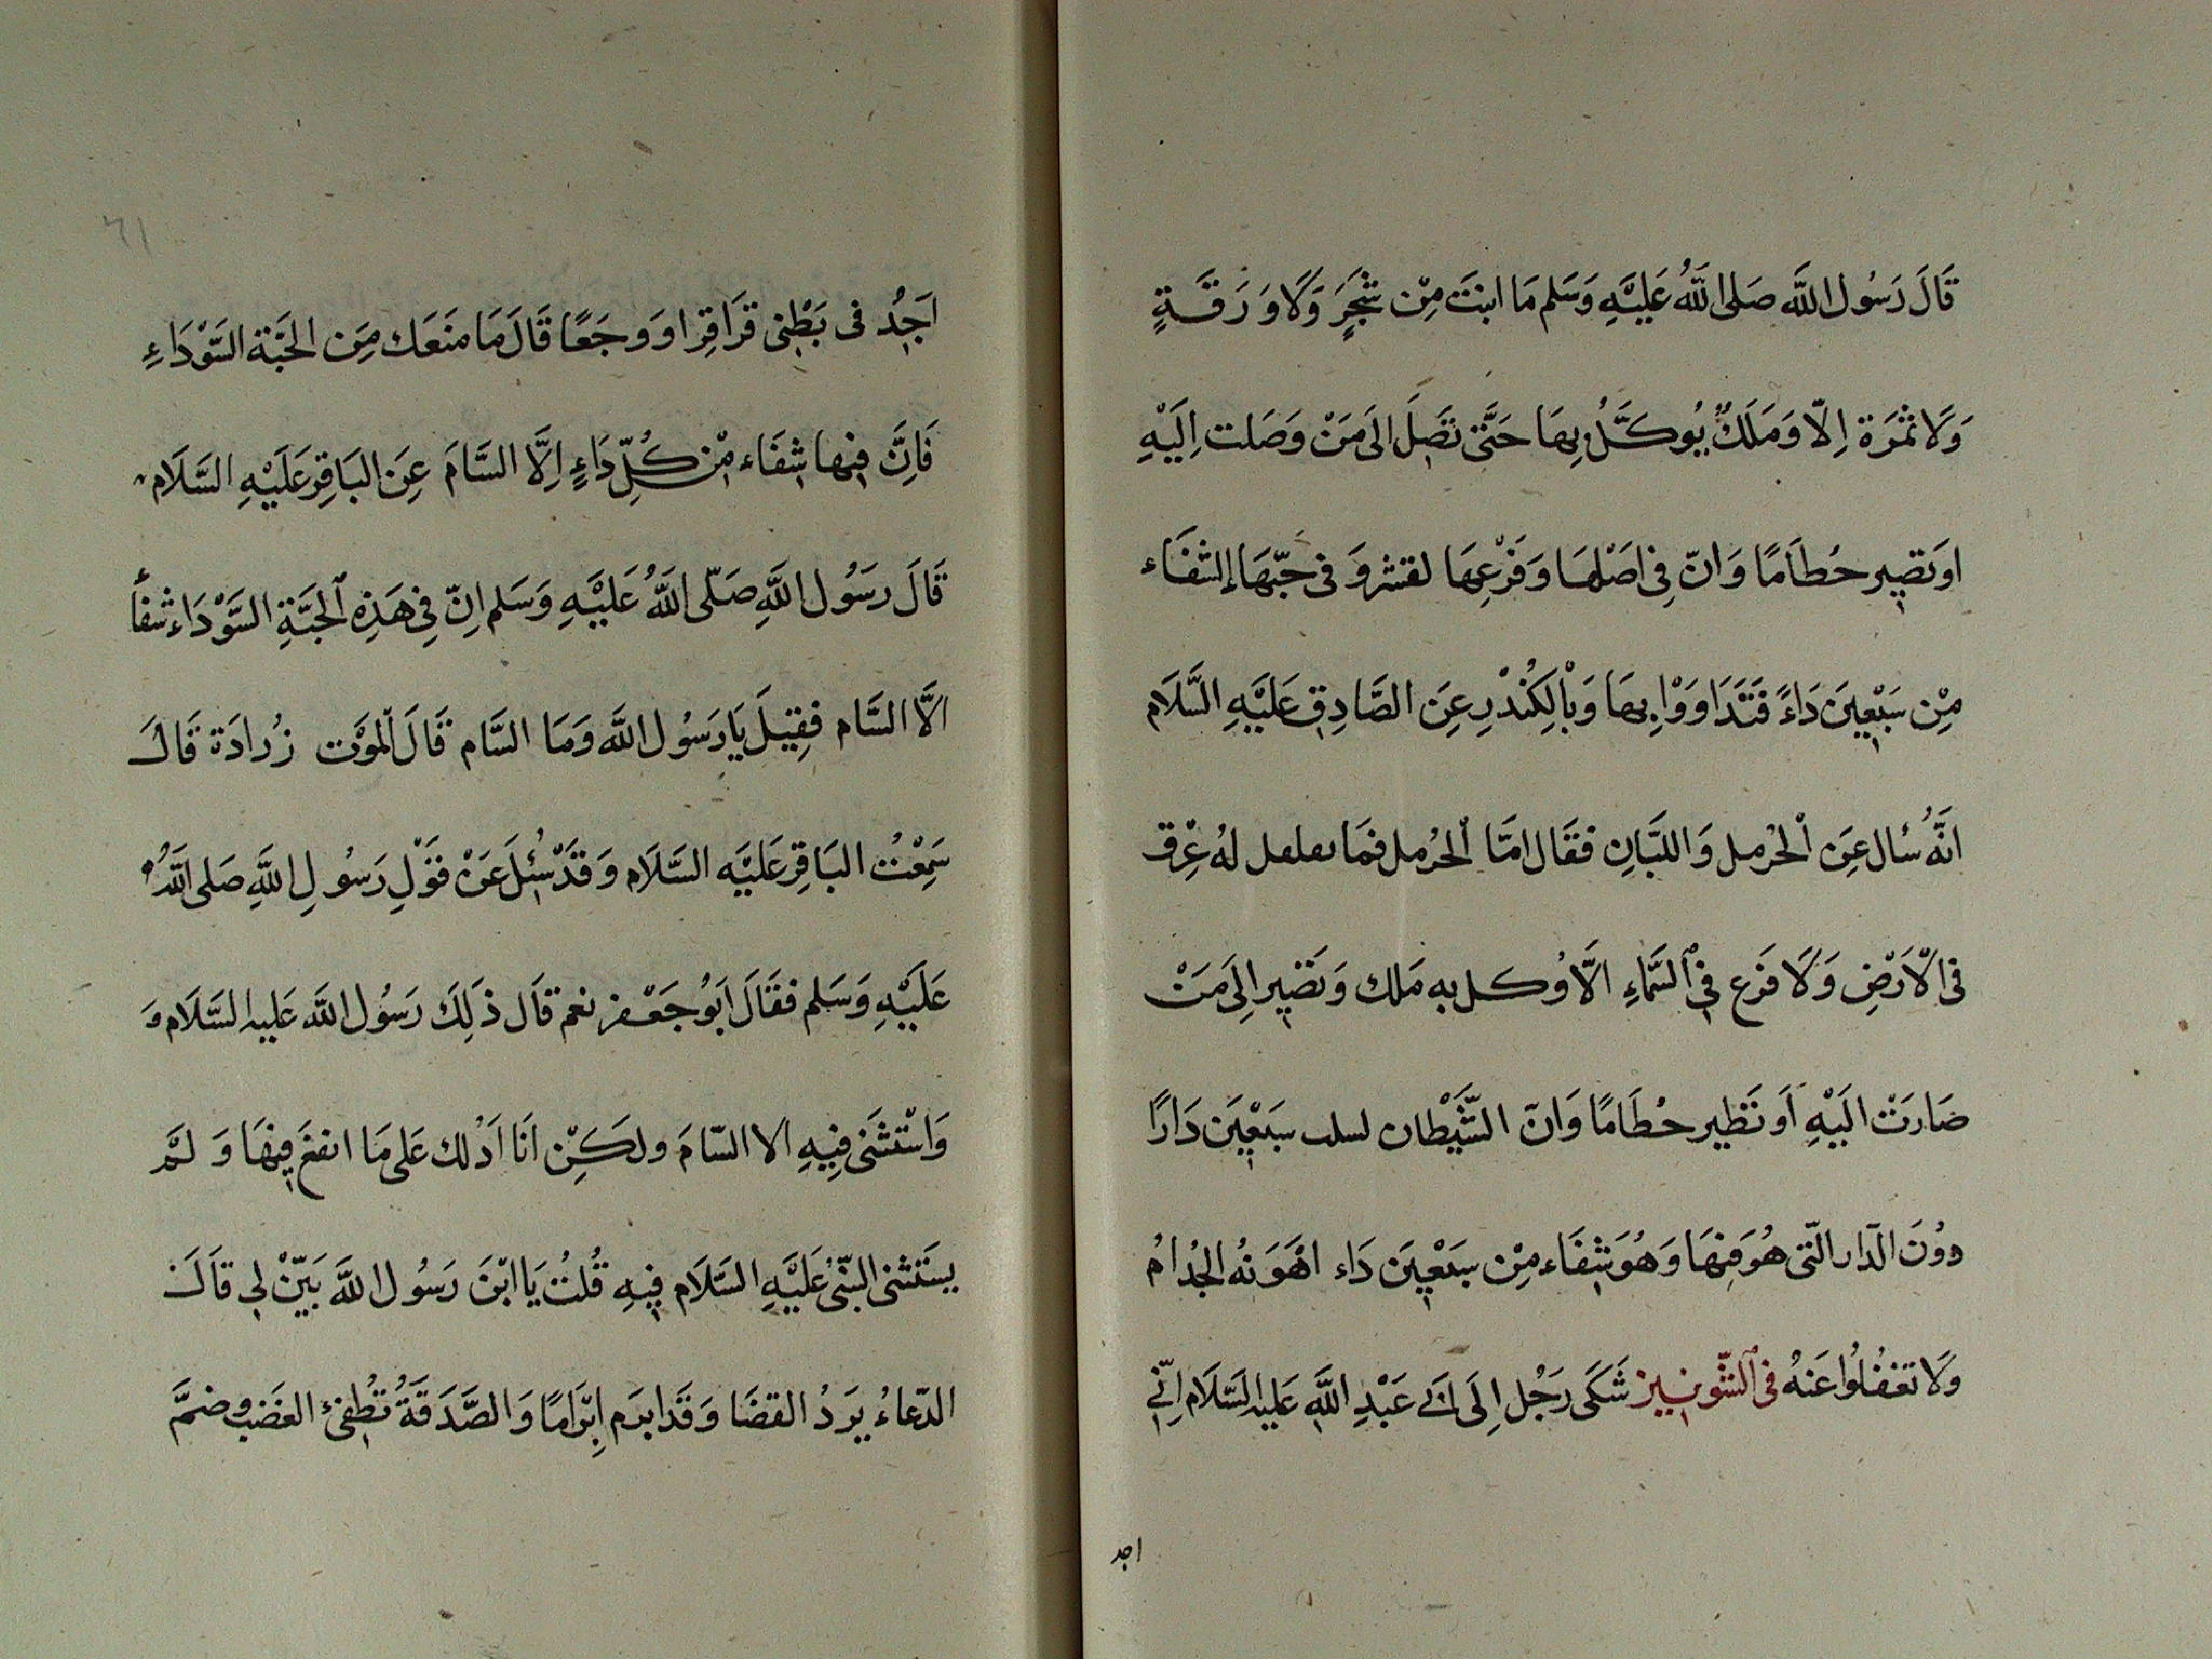 قَالَ رَسُول اللَّه صَلى اللَّهُ عَلَيْهِ وَسَلم مَا انبتَ مِنْ شَجَرٍ وَلَا وَرَقَةٍ
وَلَا ثمَرَة اِلّا وَمَلَكٌ يُوكَّلُ بِهَا حَتَّى تَصِلَ الَى مَنْ وَصَلت اِلَيْهِ
اوَتصِير حُطَامًا وَانّ فِى اصَْلهَا وَفَرْعِهَا لقشر وَ فى حَبّهَا إلشفَاء
مِنْ سَبْعِينَ دَاءً فَتَدَاوَوْا بِهَا وَبْالكِنُدْرِ عِنَ الصَّادِقِ عَلَيْهِ السَّلَام
انَّهُ سُال عِنَ الْحُرمل وَاللبَانِ فقَال امَّا الْحُرمل فمَا ىعلعل لهُ عِْرق
فى الْاَرْضِ وَلَا فَرَع فِى السَّمَاءِ الَّا وُكل به مَلك وَتَصِير اِلَى مَنْ
صَارَتْ الَيْهِ اَو تَظِير حُطَامًا وَانّ الشَّيْطان لسلب سَبْعِينَ دَارًا
دوُنَ الدّار التّى هُوَ فِيْهَا وَهُوَ شِفَاء مِنْ سَبْعِينَ دَاء اهْوَنُه الجُدامُ
وَلَا تغفُلُوا عَنهُ فى الشّونِيز شَكَى رَجُل اِلَى اَبى عَبْدِ اللَّهِ عَليه السَّلَام اِنّى
اجد
٦١
اَجِدُ فى بَطْنِى قرَاقِرا وَوجَعًا قَالَ مَا منَعَك مِنَ الحَبَّة السَّوْدَاءِ
فَاِنَّ فِيهَا شِفَاء مْن كُلِّ دَاءٍ اِلَّا السَّامَ عِنَ البَاقِر عَلَيْهِ السَّلَام
قَالَ رَسُول اللَّهِ صَلّى اللَّهُ عَلَيْهِ وَسَلم اِنّ فِى هَذِهِ الحَبَّةِ السَّوْدَاء شفاً
الَّا السَّام فقِيلَ يَا رَسُول اللَّه وَمَا السَّام قَالَ الْموَْت زُرادَة قَالَ
سَمِعْتُ البَاقِر عَلَيْهِ السَّلَام وَقَدْ سُئِلَ عَنْ قوَْلِ رَسُولِ اللَّهِ صَلى اللَّهُ
عَلَيْهِ وَسَلم فقَالَ اَبوُ جَعْفر نعم قاَل ذَلِكَ رَسُول اللَّه عَليه السَّلَام وَ
وَاسْتثنَى فِيهِ الا السّامَ ولكَِنْ انَا اَدْلك عَلى مَا انفعَ فِيْهَا وَ لَمْ
يسَتثنى النّبىُ عَلَيْهِ السَّلَام فِيهِ قُلتُ يَا ابْنَ رَسُول اللَّه بَيّنْ لِى قاَلَ
الدّعَاءُ يرَدُ القضَا وَقَد ابرَم اِبْرَامًا وَالصَّدَقَةُ تُطِفئُ الغَضب وضمَّ